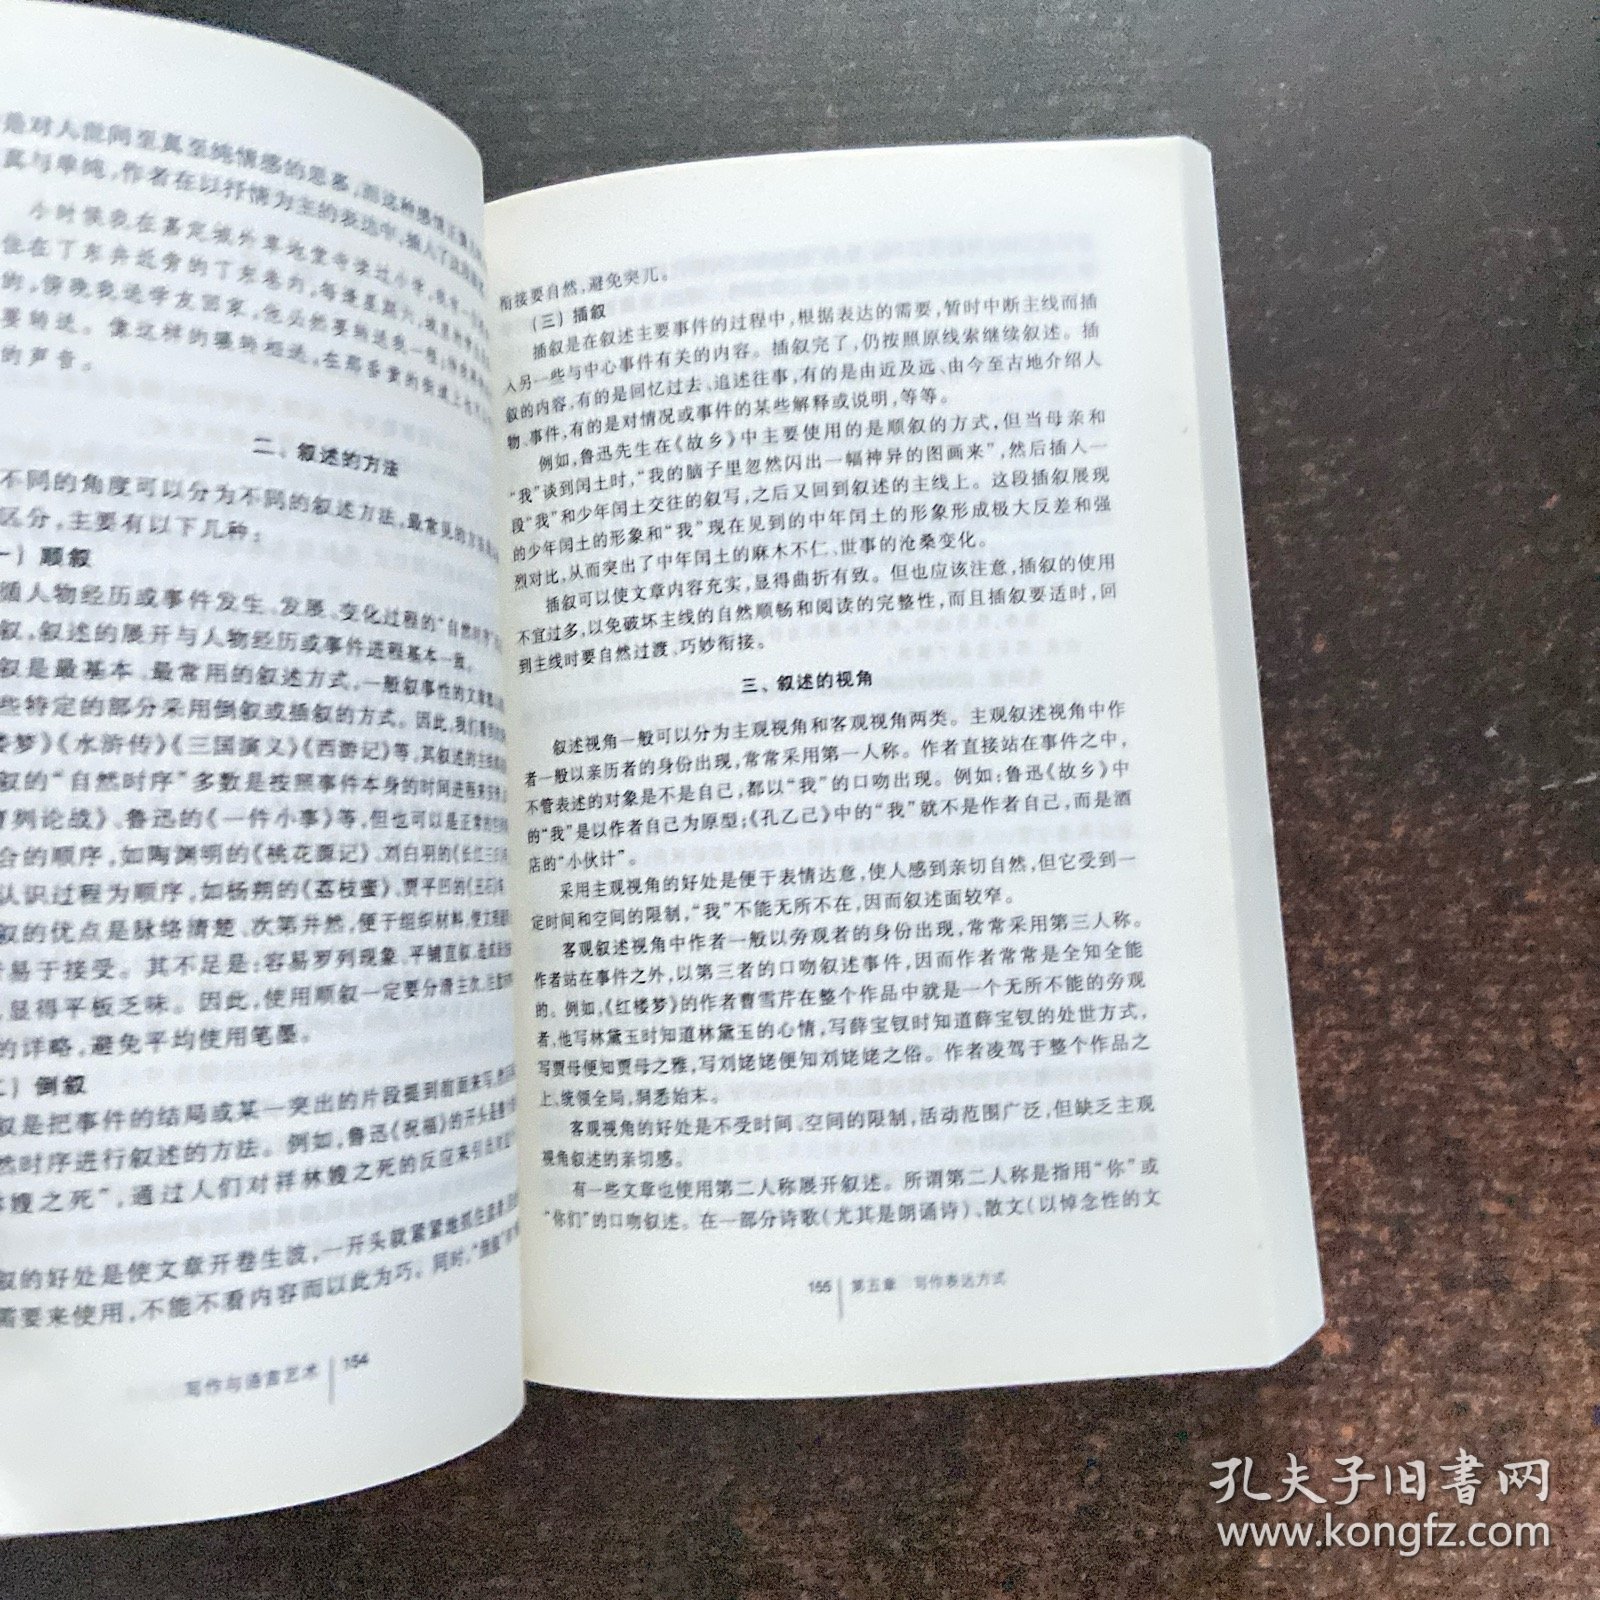 是对人世间至真至纯情感的思慕,而这种感情正像
真与单纯,作者在以抒情为主的表达中,插入了
小时候我在嘉定城外草地堂寺读过小学,我有一
住在丁东井近旁的丁东巷内,每逢星期六,
的,傍晚我送学友回家,他必然要转送我一程;
要转送。像这样的辗转相送,在那昏黄的街道上也
的声音。
二、叙述的方法
不同的角度可以分为不同的叙述方法,最常见的
区分,主要有以下几种:
一)顺叙
插人物经历或事件发生、发展、变化过程的“自然时序”
叙,叙述的展开与人物经历或事件进程基本一致。
叙是最基本、最常用的叙述方式,一般叙事性的文章
些特定的部分采用倒叙或插叙的方式。因此,我们看到的
楼梦》《水浒传》《三国演义》《西游记》等,其叙述的主线
叙的“自然时序”多数是按照事件本身的时间进程来安排,
曹刿论战》、鲁迅的《一件小事》等,但也可以是正常的空间
合的顺序,如陶渊明的《桃花源记》、刘白羽的《长江三日》
认识过程为顺序,如杨朔的《荔枝蜜》、贾平凹的《丑石》
叙的优点是脉络清楚、次第井然,便于组织材料,使文章
易于接受。其不足是:容易罗列现象、平铺直叙,造成
,显得平板乏味。因此,使用顺叙一定要分清主次,注意
的详略,避免平均使用笔墨。
二)倒叙
叙是把事件的结局或某一突出的片段提到前面来写,然后
然时序进行叙述的方法。例如,鲁迅《祝福》的开头是
林嫂之死”,通过人们对祥林嫂之死的反应来引出
叙的好处是使文章开卷生波,一开头就紧紧地抓住读者
需要来使用,不能不看内容而以此为巧。同时,“倒叙”
写作与语言艺术 154
衔接要自然,避免突兀。
(三)插叙
插叙是在叙述主要事件的过程中,根据表达的需要,暂时中断主线而插
入另一些与中心事件有关的内容。插叙完了,仍按照原线索继续叙述。插
叙的内容,有的是回忆过去、追述往事,有的是由近及远、由今至古地介绍人
物、事件,有的是对情况或事件的某些解释或说明,等等。
例如,鲁迅先生在《故乡》中主要使用的是顺叙的方式,但当母亲和
“我”谈到闰土时,“我的脑子里忽然闪出一幅神异的图画来”,然后插入一
段“我”和少年闰土交往的叙写,之后又回到叙述的主线上。这段插叙展现
的少年闰土的形象和“我”现在见到的中年闰土的形象形成极大反差和强
烈对比,从而突出了中年闰土的麻木不仁、世事的沧桑变化。
插叙可以使文章内容充实,显得曲折有致。但也应该注意,插叙的使用
不宜过多,以免破坏主线的自然顺畅和阅读的完整性,而且插叙要适时,回
到主线时要自然过渡、巧妙衔接。
三、叙述的视角
叙述视角一般可以分为主观视角和客观视角两类。主观叙述视角中作
者一般以亲历者的身份出现,常常采用第一人称。作者直接站在事件之中,
不管表述的对象是不是自己,都以“我”的口吻出现。例如:鲁迅《故乡》中
的“我”是以作者自己为原型;《孔乙己》中的“我”就不是作者自己,而是酒
店的“小伙计”。
采用主观视角的好处是便于表情达意,使人感到亲切自然,但它受到一
定时间和空间的限制,“我”不能无所不在,因而叙述面较窄。
客观叙述视角中作者一般以旁观者的身份出现,常常采用第三人称。
作者站在事件之外,以第三者的口吻叙述事件,因而作者常常是全知全能
的。例如,《红楼梦》的作者曹雪芹在整个作品中就是一个无所不能的旁观
者,他写林黛玉时知道林黛玉的心情,写薛宝钗时知道薛宝钗的处世方式,
写贾母便知贾母之雅,写刘姥姥便知刘姥姥之俗。作者凌驾于整个作品之
上,统领全局,洞悉始末。
客观视角的好处是不受时间、空间的限制,活动范围广泛,但缺乏主观
视角叙述的亲切感。
有一些文章也使用第二人称展开叙述。所谓第二人称是指用“你”或
“你们”的口吻叙述。在一部分诗歌(尤其是朗诵诗)、散文(以悼念性的文
155 第五章 写作表达方式
孔夫子旧書网
www.kongfz.com